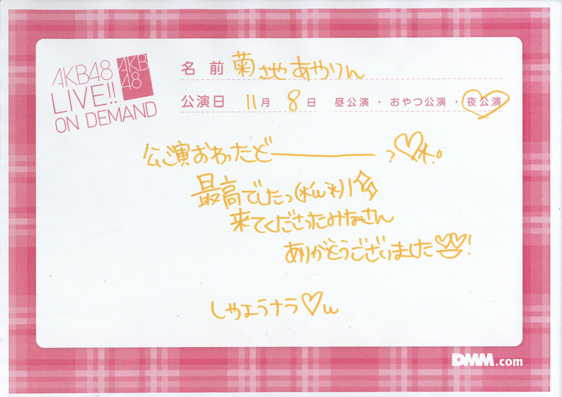 AKB48
LIVE!!
ON DEMAND
AKB
48
名前 菊地あやりん
公演日 11月 8日 昼公演・おやつ公演・夜公演
公演おわったどーーーーっ♡
最高でしたっ(*'ω'*)
来てくださったみなさん
ありがとうございました!
しゃようナラ♡w
DMM.com